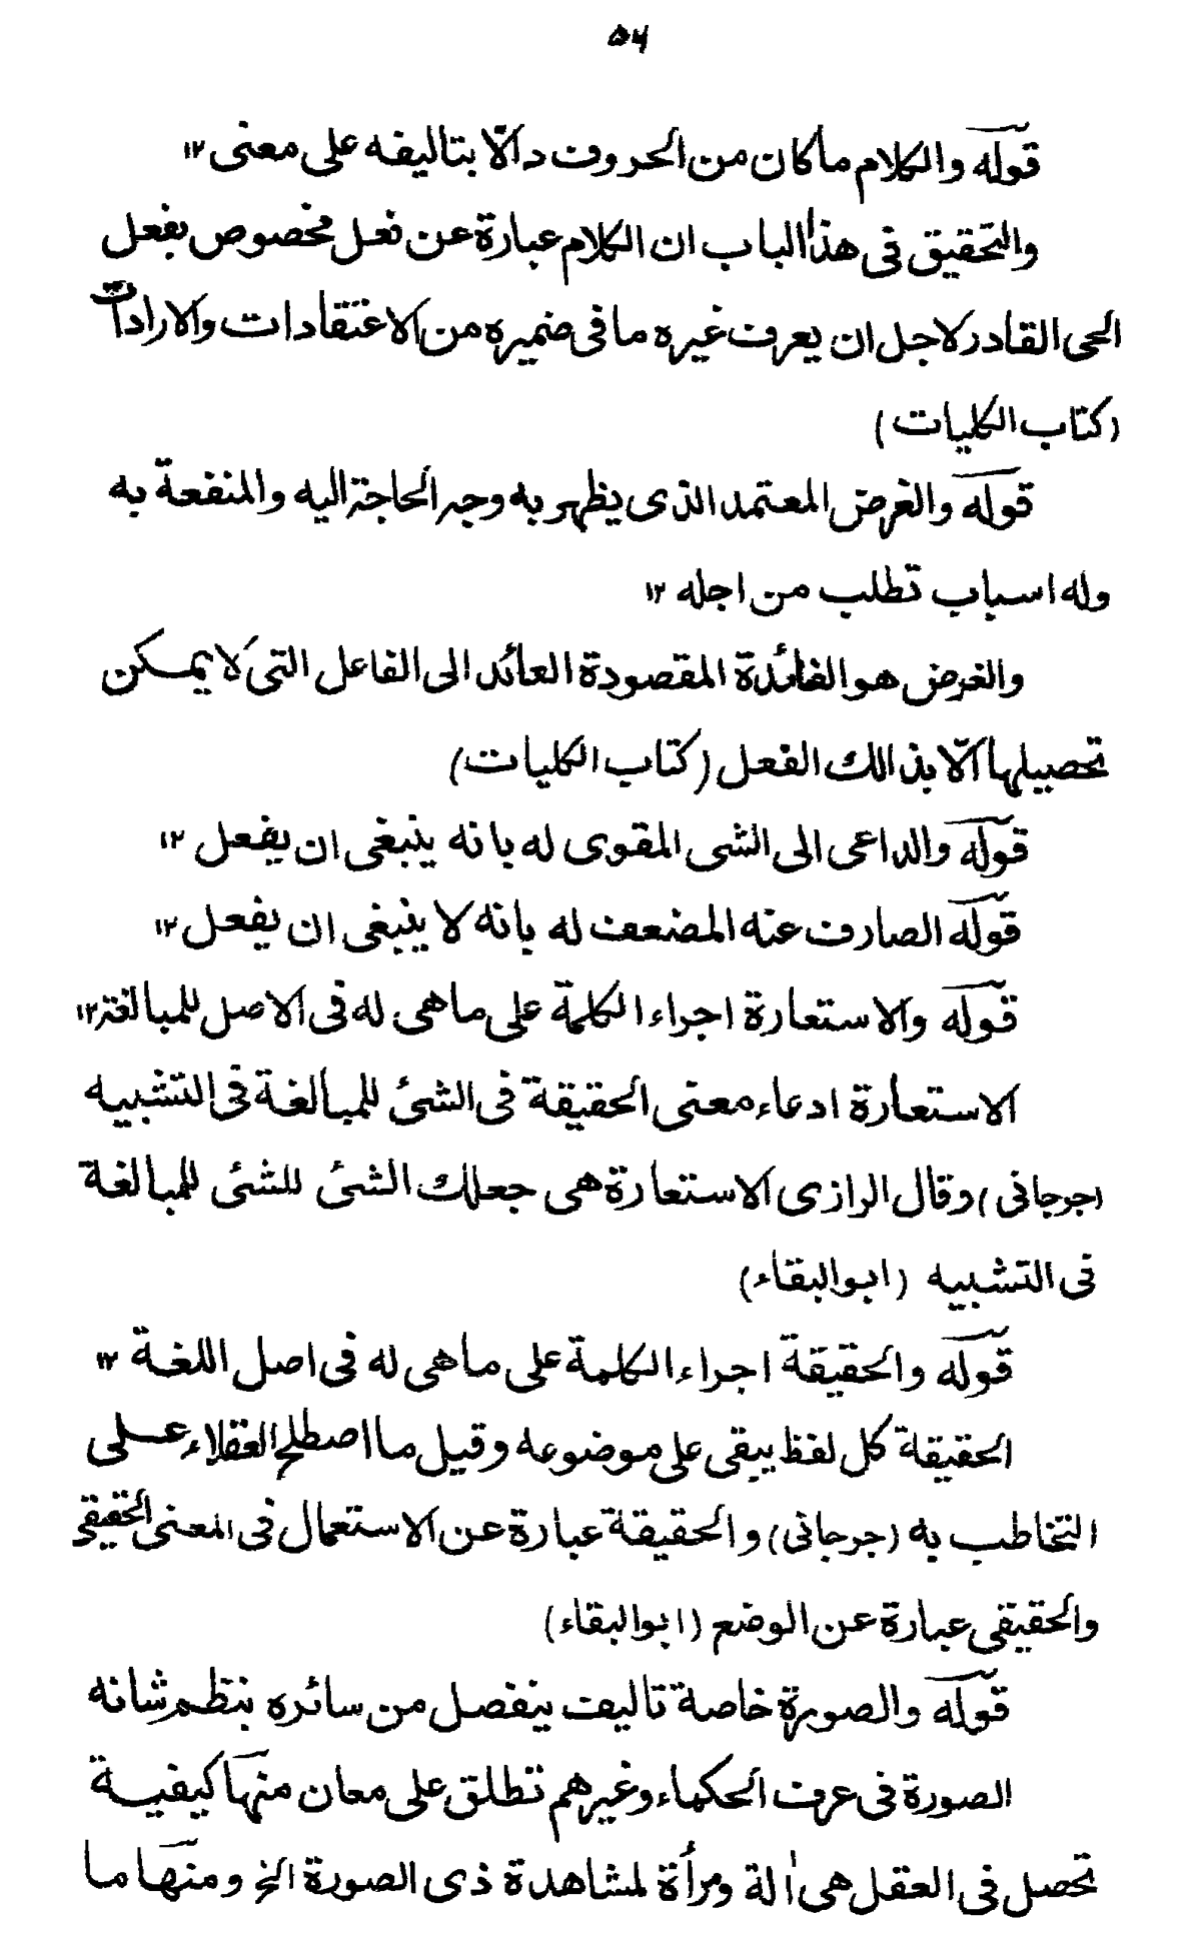 ۵۴
قوله والكلام ماكان من الحروف دالّا بتاليفه على معنى ۱۲
والتحقيق فى هذا الباب ان الكلام عبارة عن فعل مخصوص يفعل
الحى القادر لاجل ان يعرف غيره ما فى ضميره من الاعتقادات والارادات
(كتاب الكليات)
قوله والغرض المعتمد الذى يظهر به وجه الحاجة اليه والمنفعة به
وله اسباب تطلب من اجله ۱۲
والغرض هو الفائدة المقصودة العائد الى الفاعل التى لا يمكن
تحصيلها الّا بذالك الفعل (كتاب الكليات)
قوله والداعى الى الشى المقوى له بانه ينبغى ان يفعل ۱۲
قوله الصارف عنه المضعف له بانه لا ينبغى ان يفعل ۱۲
قوله والاستعارة اجراء الكلمة على ماهى له فى الاصل للمبالغة ۱۲
الاستعارة ادعاء معنى الحقيقة فى الشئ للمبالغة فى التشبيه
(جرجانى) وقال الرازى الاستعارة هى جعلك الشئ للشئ للمبالغة
فى التشبيه (ابوالبقاء)
قوله والحقيقة اجراء الكلمة على ماهى له فى اصل اللغة ۱۲
الحقيقة كل لفظ يبقى على موضوعه وقيل ما اصطلح العقلاء على
التخاطب به (جرجانى) والحقيقة عبارة عن الاستعمال فى المعنى الحقيقى
والحقيقى عبارة عن الوضع (ابوالبقاء)
قوله والصورة خاصة تاليف ينفصل من سائره بنظم شانه
الصورة فى عرف الحكماء وغيرهم تطلق على معان منها كيفية
تحصل فى العقل هى اٰلة ومرأة لمشاهدة ذى الصورة الخ ومنها ما